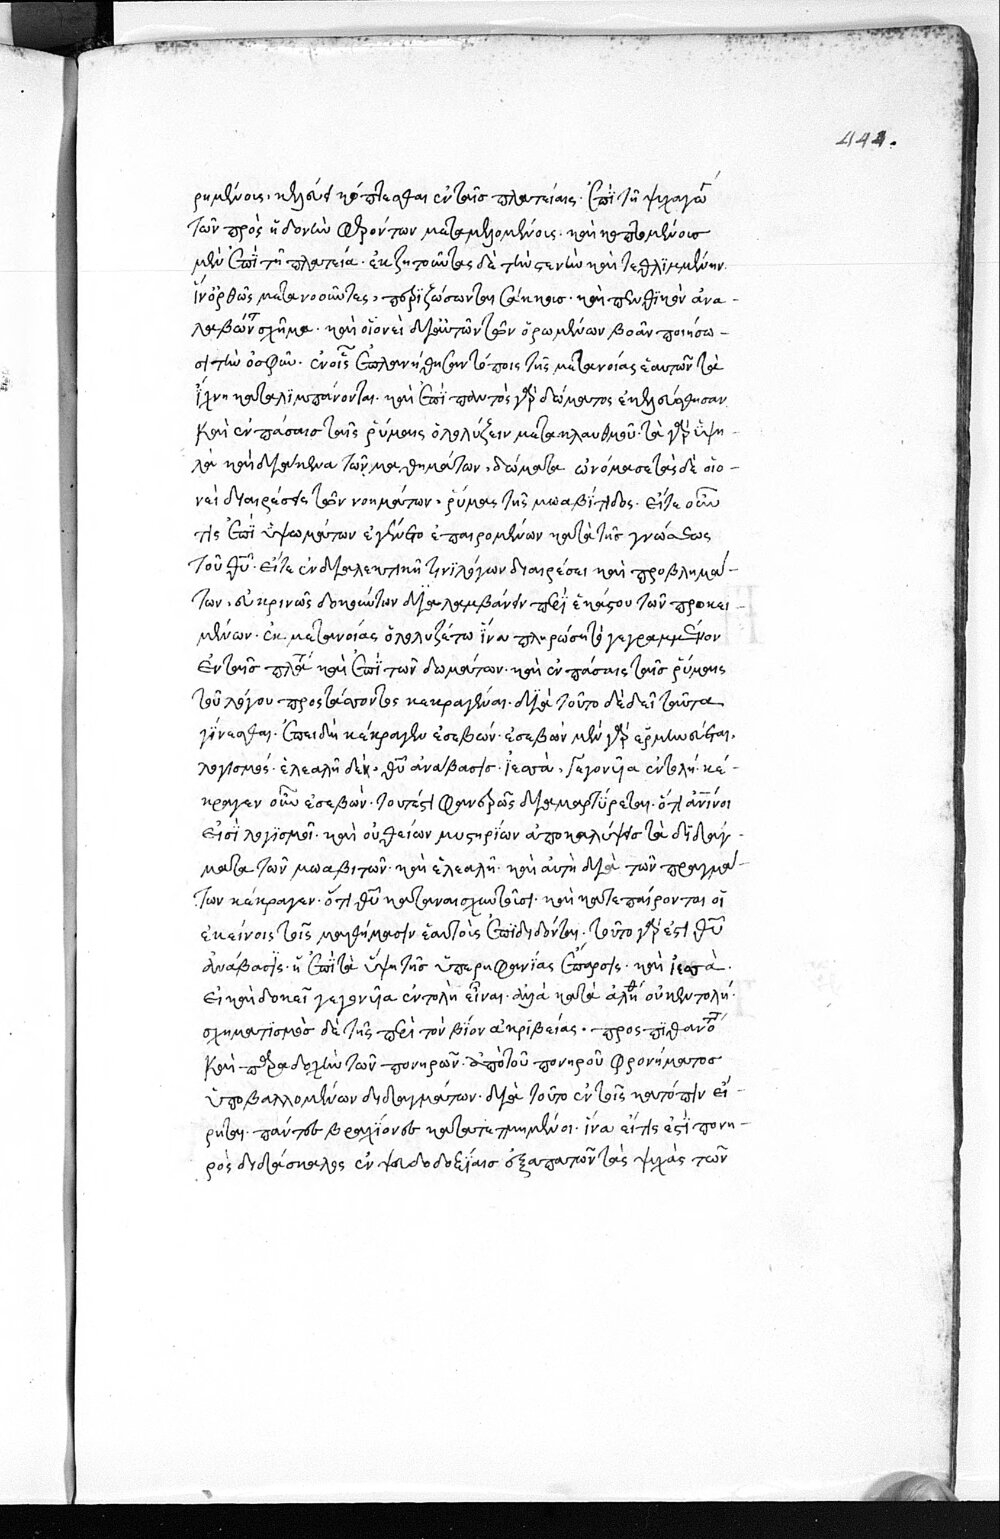 444.
ρημένοις, κελεύει κόπτεσθαι ἐν ταῖς πλατείαις. ἐπὶ τῇ ψυχαγω
τῶν πρὸς ἡδονὴν φερόντων μεταμελομένοις. καὶ κοπτομένοις
μὲν ἐπὶ τῇ πλατείᾳ. ἐκζητοῦντας δὲ τὴν στενὴν καὶ τεθλιμμένην.
ἵν' ὀρθῶς μετανοοῦντες, περιζώσωνται σάκκοις. καὶ πενθικὸν ἀνα-
λαβών σχῆμα. καὶ οἱονεὶ δι' αὐτῶν τῶν ὁρωμένων βοᾶν ποιήσω-
σι τὴν ὀσφῦν. ἐν οἷς ἐπλανήθησαν τόποις τῆς μετανοίας ἑαυτῶν τὰ
ἴχνη καταλιμπάνονται. καὶ ἐπὶ παντὸς γὰρ δώματος ἐκελεύσθησαν
καὶ ἐν πάσαις ταῖς ῥύμαις ὀλολύζειν μετὰ κλαυθμοῦ. τὰ γὰρ ὑψη-
λὰ καὶ διάκενα τῶν μαθημάτων, δώματα ὠνόμασε τὰς δὲ οἱο-
νεὶ διαιρέσεις τῶν νοημάτων, ῥύμας τῆς μωαβίτιδος. εἴτε οὖν
τις ἐπὶ ὑψωμάτων ἐγένετο ἐπαιρομένων κατὰ τῆς γνώσεως
τοῦ θυ. εἴτε ἐν διαλεκτικῇ τινι λόγων διαιρέσει καὶ προβλημά-
των, εὐκρινῶς δοκούντων διαλαμβάνειν περὶ ἑκάστου τῶν προκει-
μένων. ἐκ μετανοίας ὀλολυζέτω ἵνα πληρώσῃ τὸ γεγραμμένον
ἐν ταῖς πλα καὶ ἐπὶ τῶν δωμάτων. καὶ ἐν πάσαις ταῖς ῥύμαις
τοῦ λόγου προστάττοντος κεκραγέναι. διὰ τοῦτο δὲ δεῖ ταῦτα
γίνεσθαι. ἐπειδὴ κέκραγεν ἐσεβών. ἐσεβὼν μὲν γὰρ ἑρμηνεύεται,
λογισμός. ἐλεαλὴ δὲ, θυ ἀνάβασις. ἰεσσὰ, γεγονυῖα ἐντολή. κέ-
κραγεν οὖν ἐσεβών. τουτέστι φανερῶς διαμαρτύρεται. ὅτι ἀνινοι
εἰσὶ λογισμοί. καὶ οὐ θείων μυστηρίων ἀποκαλύψεις τὰ διδάγ-
ματα τῶν μωαβιτῶν. καὶ ἐλεαλὴ. καὶ αὐτὴ διὰ τῶν πραγμά-
των κέκραγεν. ὅτι θυ καταναισχυντοῦσι. καὶ κατεπαίρονται οἱ
ἐκείνοις τοῖς μαθήμασιν ἑαυτοὺς ἐπιδιδόντες. τοῦτο γάρ ἐστι θυ
ἀνάβασις. ἡ ἐπὶ τὰ ὕψη τῆς ὑπερηφανίας ἔπαρσις. καὶ ἰεσσὰ.
εἰ καὶ δοκεῖ γεγονυῖα ἐντολὴ εἶναι. ἀλλὰ κατὰ ἀλη οὐκ ἐντολή.
σχηματισμὸς δὲ τῆς περὶ τὸν βίον ἀκριβείας. προς πιθανο
καὶ παραδοχὴν τῶν πονηρῶν. ἀπὸ τοῦ πονηροῦ φρονήματος
ὑποβαλλομένων διδαγμάτων. διὰ τοῦτο ἐν τοῖς κατόπιν εἴ-
ρηται. πάντες βραχίονες κατατετμημένοι. ἵνα εἴ τις ἐστὶ πονη-
ρὸς διδάσκαλος ἐν ψευδοδοξίαις ἐξαπατῶν τὰς ψυχὰς τῶν